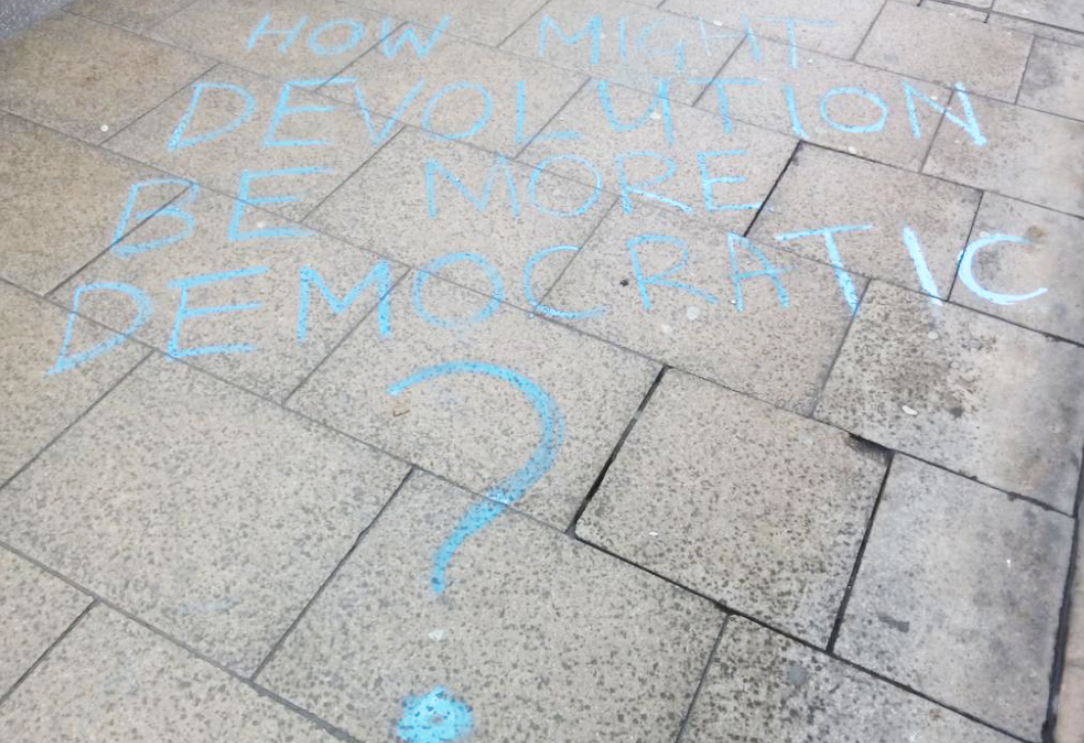 HOW MIGHT
DEVOLUTION
BE MORE
DEMOCRATIC
?